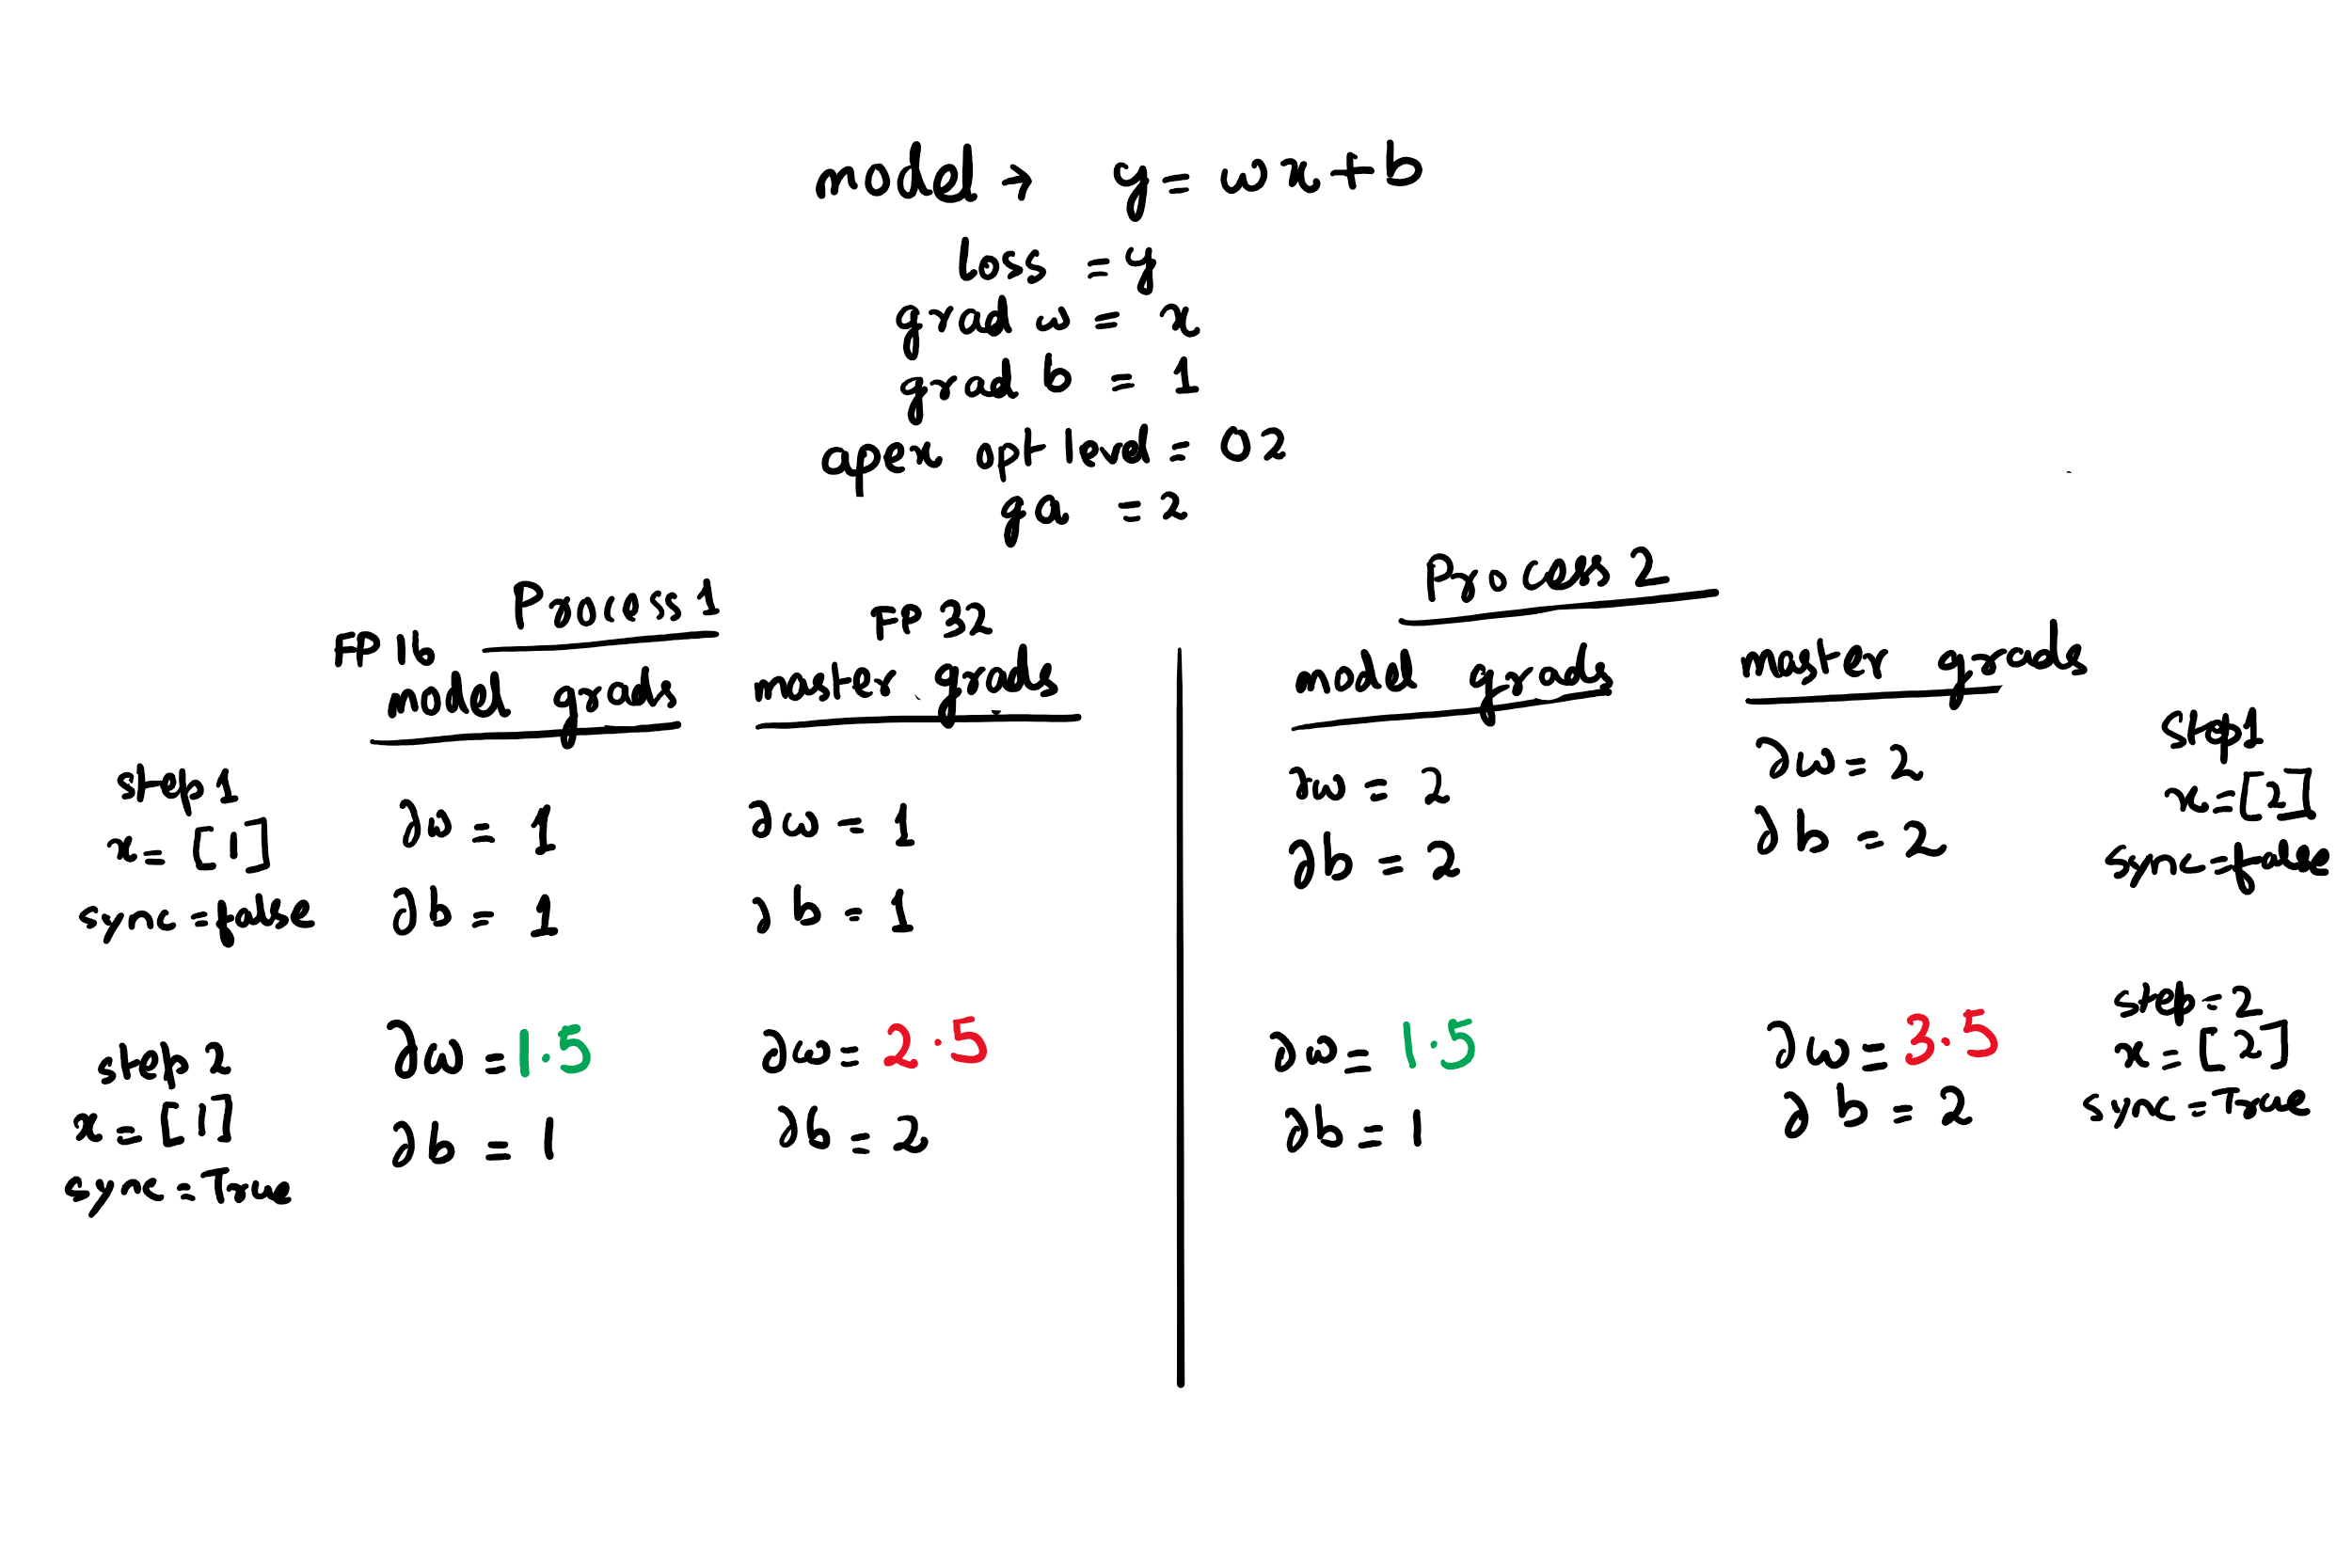 model → y = wx+b
loss = y
grad w = x
grad b = 1
apex opt level = O2
ga = 2
Process 1
FP16
model grads
FP32
master grads
step 1
x = [1]
sync = false
∂w = 1
∂b = 1
∂w = 1
∂b = 1
step 2
x = [1]
sync = True
∂w = 1.5
∂b = 1
∂w = 2.5
∂b = 2
Process 2
model grads
master grads
∂w = 2
∂b = 2
∂w = 2
∂b = 2
step 1
x = [2]
sync = false
∂w = 1.5
∂b = 1
∂w = 3.5
∂b = 2
step = 2
x = [2]
sync = True